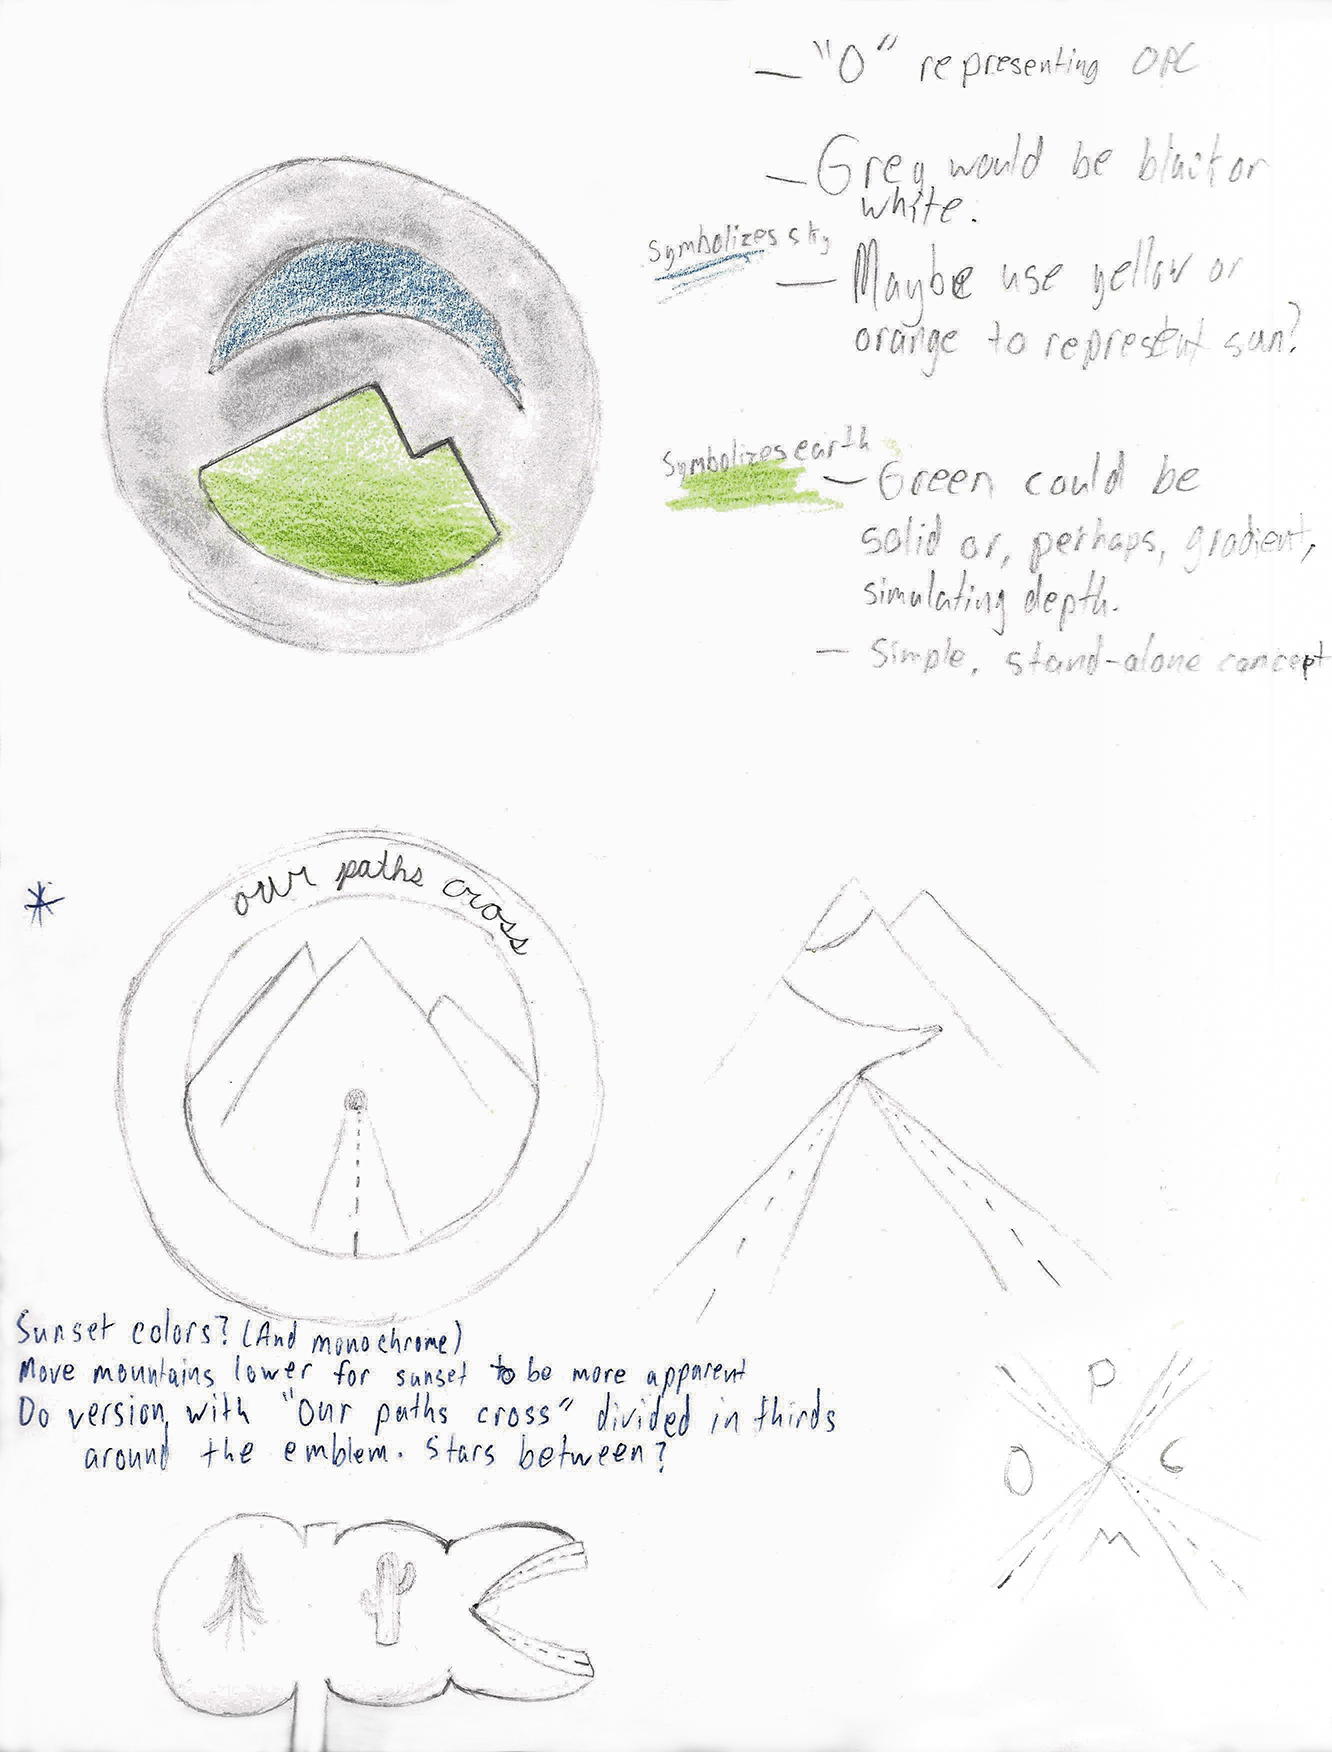 — "O" representing OPC
— Grey would be black or
white.
Symbolizes sky
— Maybe use yellow or
orange to represent sun?
Symbolizes earth
— Green could be
solid or, perhaps, gradient,
simulating depth.
— Simple, stand-alone concept
our paths cross
Sunset colors? (And monochrome)
Move mountains lower for sunset to be more apparent
Do version with "Our paths cross" divided in thirds
around the emblem. Stars between?
P
O C
M
OPC